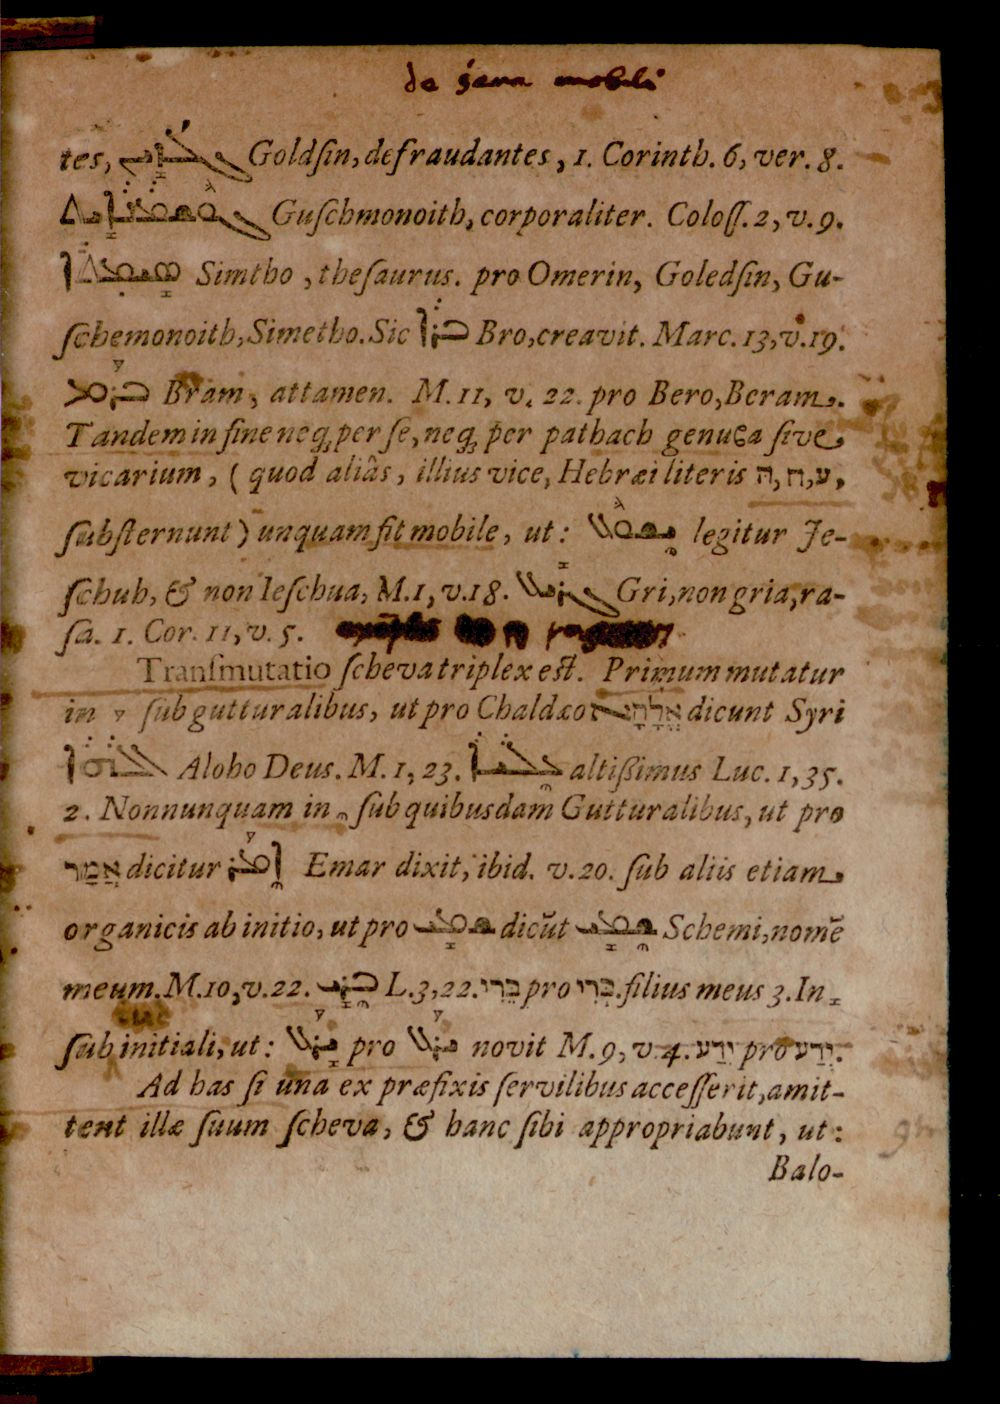 de sceva mobili
tes, ܓܠܙܝܢ Goldſin, defraudantes, 1. Corinth. 6, ver. 8.
ܓܘܫܡܢܐܝܬ Guſchmonoith, corporaliter. Coloſſ. 2, v. 9.
ܣܝܡܬܐ Simtho, theſaurus. pro Omerin, Goledſin, Gu-
ſchemonoith, Simetho. Sic ܒܪܐ Bro, creavit. Marc. 13, v. 19.
ܒܪܡ Bram, attamen. M. 11, v. 22. pro Bero, Beram.
Tandem in fine neq; per ſe, neq; per pathach genuba ſive
vicarium, (quod aliâs, illius vice, Hebræi literis ה, ח, ע,
ſubſternunt) unquam fit mobile, ut: ܝܫܘܥ legitur Je-
ſchuh, & non Ieſchua, M. 1, v. 18. ܓܪܝܥ Gri, non gria, ra-
ſa. 1. Cor. 11, v. 5.
Tranſmutatio ſcheva triplex eſt. Primum mutatur
in ſub gutturalibus, ut pro Chaldæo אֱלָהָא dicunt Syri
ܐܠܗܐ Aloho Deus. M. 1, 23. ܥܠܝܐ altiſſimus Luc. 1, 35.
2. Nonnunquam in ſub quibusdam Gutturalibus, ut pro
אֲמַר dicitur ܐܡܪ Emar dixit, ibid. v. 20. ſub aliis etiam
organicis ab initio, ut pro ܫܡܝ dicũt ܫܡܝ Schemi, nomẽ
meum. M. 10, v. 22. ܒܪܝ L. 3, 22. בֵּרִי pro בְּרִי. filius meus 3. In
ſub initiali, ut: ܝܕܥ pro ܝܕܥ novit M. 9, v. 4. יִדַע pro יְדַע.
Ad has ſi una ex præfixis ſervilibus acceſſerit, amit-
tent illæ ſuum ſcheva, & hanc ſibi appropriabunt, ut:
Balo-